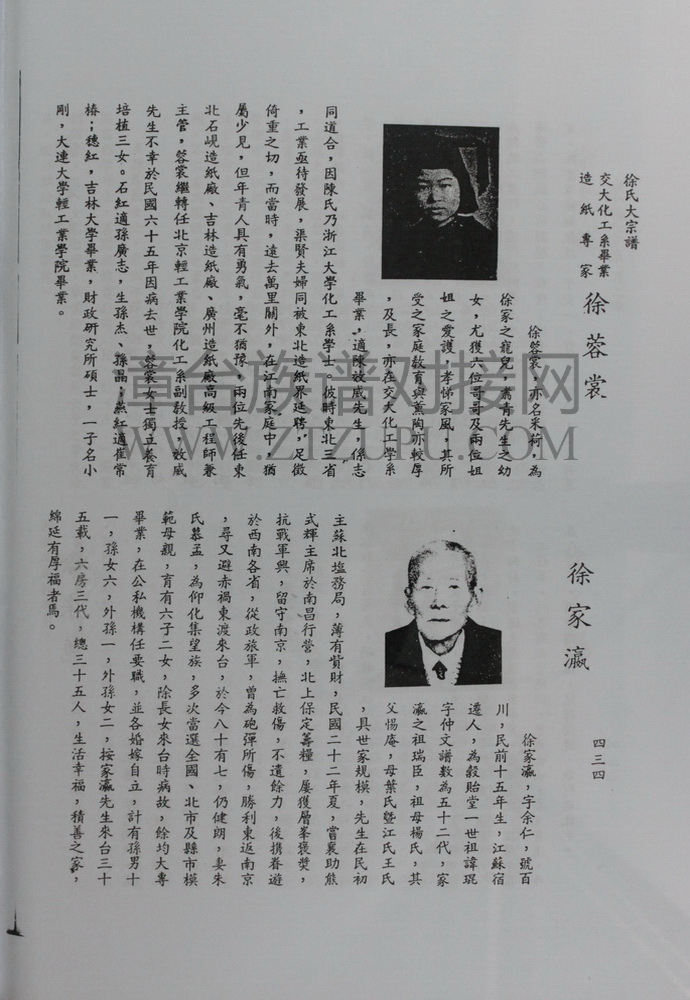 徐氏大宗譜
交大化工系畢業
造紙專家
徐蓉裳
徐蓉裳,亦名采荷,為
徐家之寵兒,素青先生之幼
女,尤獲六位哥哥及兩位姐
姐之愛護,孝悌家風,其所
受之家庭教育與薰陶亦較厚
,及長,亦在交大化工學系
畢業,適陳效威先生,係志
同道合,因陳氏乃浙江大學化工系學士。彼時東北三省
,工業亟待發展,渠賢夫婦同被東北造紙界延聘,足徵
倚重之切,而當時,遠去萬里關外,在江南家庭中,猶
屬少見,但年青人具有勇氣,毫不猶豫,兩位先後任東
北石峴造紙廠、吉林造紙廠、廣州造紙廠高級工程師兼
主管,蓉裳繼轉任北京輕工業學院化工系副教授,效威
先生不幸於民國六十五年因病去世,蓉裳女士獨立養育
培植三女。石紅適孫廣志,生孫杰、孫晶;燕紅適崔常
椿;穗紅,吉林大學畢業,財政研究所碩士,一子名小
剛,大連大學輕工業學院畢業。
徐家瀛
四三四
徐家瀛,字余仁,號百
川,民前十五年生,江蘇宿
遷人,為毅貽堂一世祖諱琨
字仲文譜數為五十二代,家
瀛之祖瑞臣,祖母楊氏,其
父惕庵,母葉氏暨江氏王氏
,具世家規模,先生在民初
主蘇北塩務局,薄有貲財,民國二十二年夏,嘗襄助熊
式輝主席於南昌行營,北上保定籌糧,屢獲層峯褒獎,
抗戰軍興,留守南京,撫亡救傷,不遺餘力,後携眷遊
於西南各省,從政旅軍,曾為砲彈所傷,勝利東返南京
,尋又避赤禍東渡來台,於今八十有七,仍健朗,妻朱
氏慕孟,為仰化集望族,多次當選全國、北市及縣市模
範母親,育有六子二女,除長女來台時病故,餘均大專
畢業,在公私機構任要職,並各婚嫁自立,計有孫男十
一,孫女六,外孫一,外孫女二,按家瀛先生來台三十
五載,六房三代,總三十五人,生活幸福,積善之家,
綿延有厚福者焉。
章台族谱对接网
WWW.ZTZUPU.COM